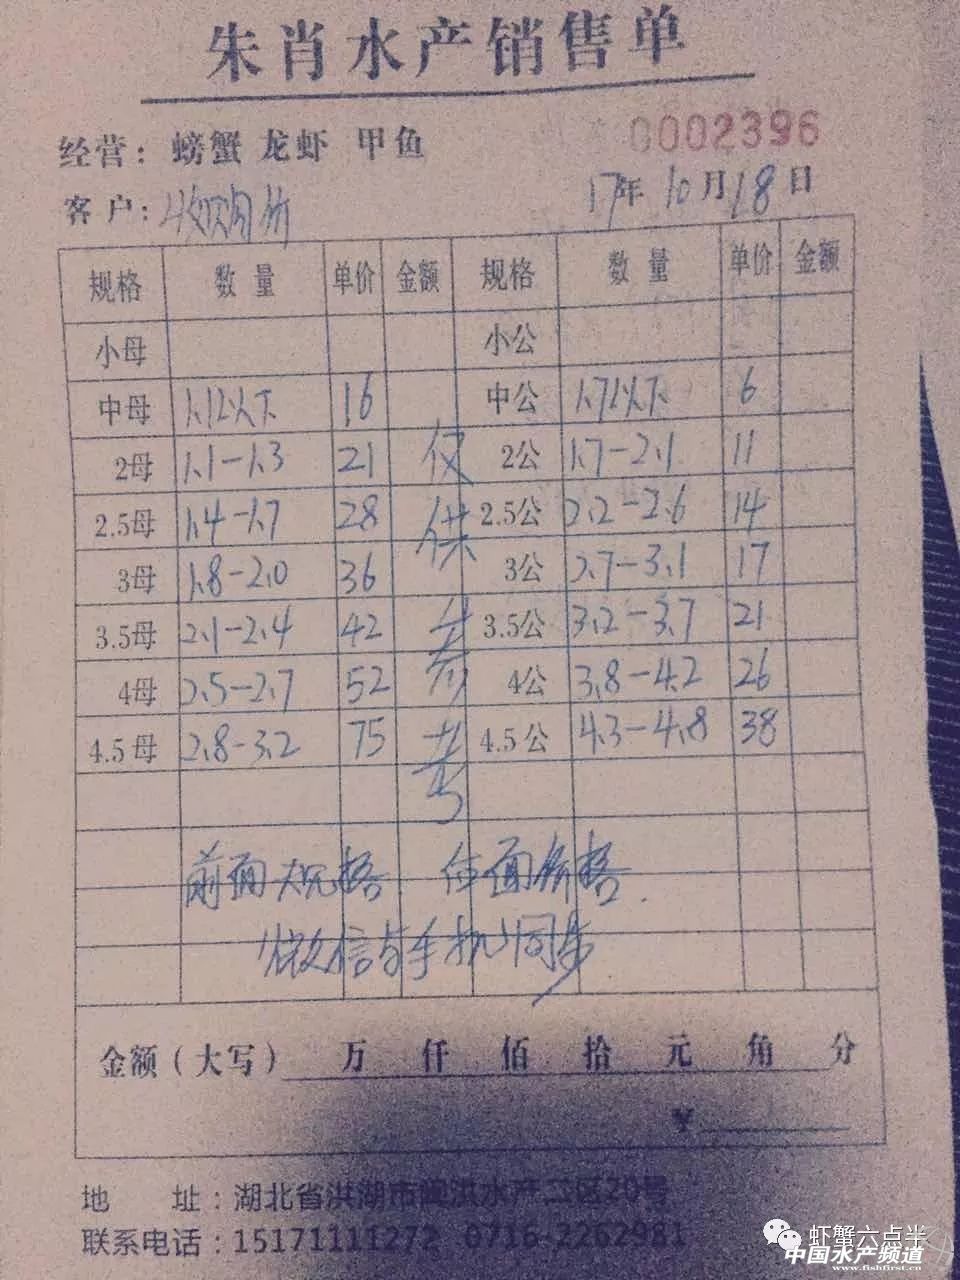 朱肖水产销售单
经营：螃蟹 龙虾 甲鱼
0002396
客户：收购价
17年10月18日
规格 数量 单价 金额 规格 数量 单价 金额
小母 小公
中母 1.1以下 16 中公 1.7以下 6
2母 1.1-1.3 21 2公 1.7-2.1 11
2.5母 1.4-1.7 28 2.5公 2.2-2.6 14
3母 1.8-2.0 36 3公 2.7-3.1 17
3.5母 2.1-2.4 42 3.5公 3.2-3.7 21
4母 2.5-2.7 52 4公 3.8-4.2 26
4.5母 2.8-3.2 75 4.5公 4.3-4.8 38
仅供参考
前面规格 后面价格
微信与手机同步
金额（大写） 万 仟 佰 拾 元 角 分
¥
地 址：湖北省洪湖市 洪水产 区20号
联系电话：15171111272 0716-3263981
虾蟹六点半
中国水产频道
www.fishfirst.cn